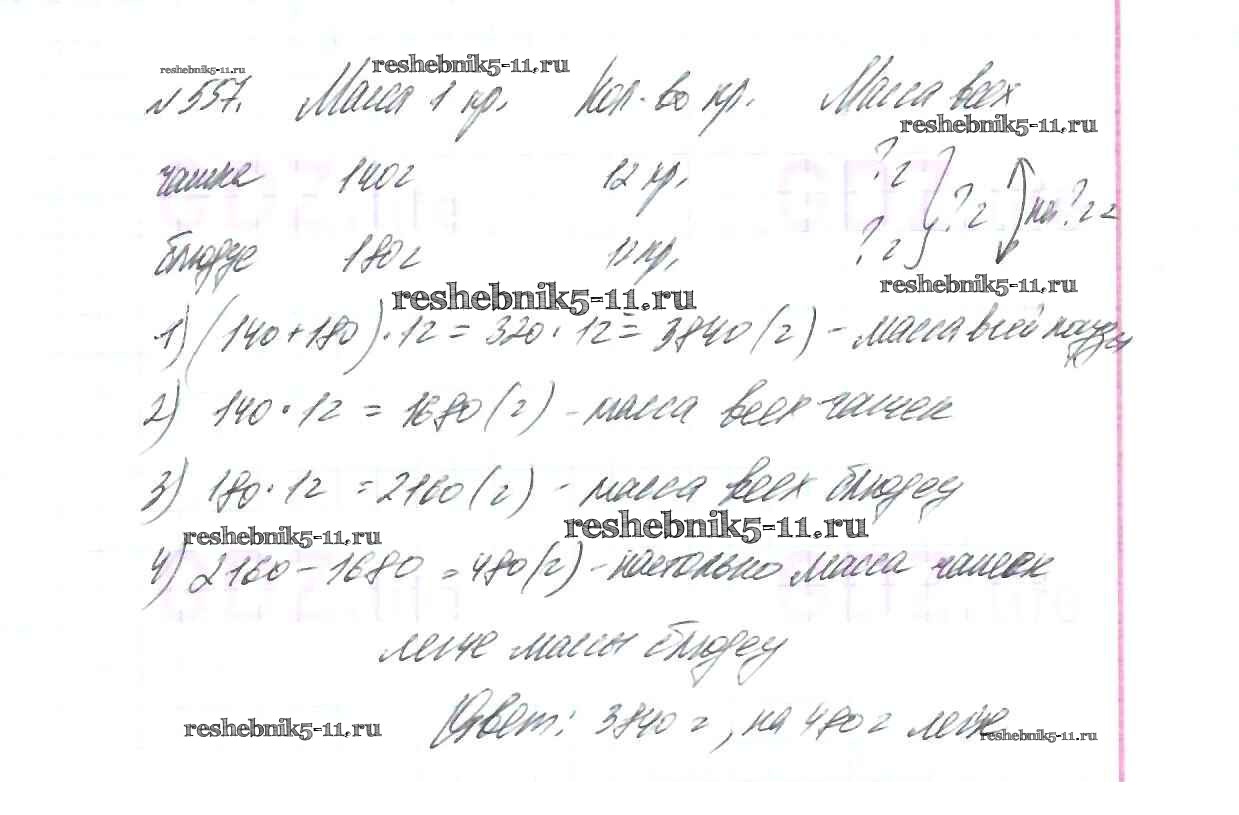 reshebnik5-11.ru
reshebnik5-11.ru
№557. Масса 1 пр. Кол-во пр. Масса всех
reshebnik5-11.ru
чашка 140г 12 пр. ?г } ?г на ?г
блюдце 180г 12 пр. ?г
reshebnik5-11.ru
reshebnik5-11.ru
1) (140+180)·12=320·12=3840(г) - масса всей посуды
2) 140·12=1680(г) - масса всех чашек
3) 180·12=2160(г) - масса всех блюдец
reshebnik5-11.ru
reshebnik5-11.ru
4) 2160-1680=480(г) - настолько масса чашек
легче массы блюдец
Ответ: 3840 г, на 480 г легче
reshebnik5-11.ru
reshebnik5-11.ru